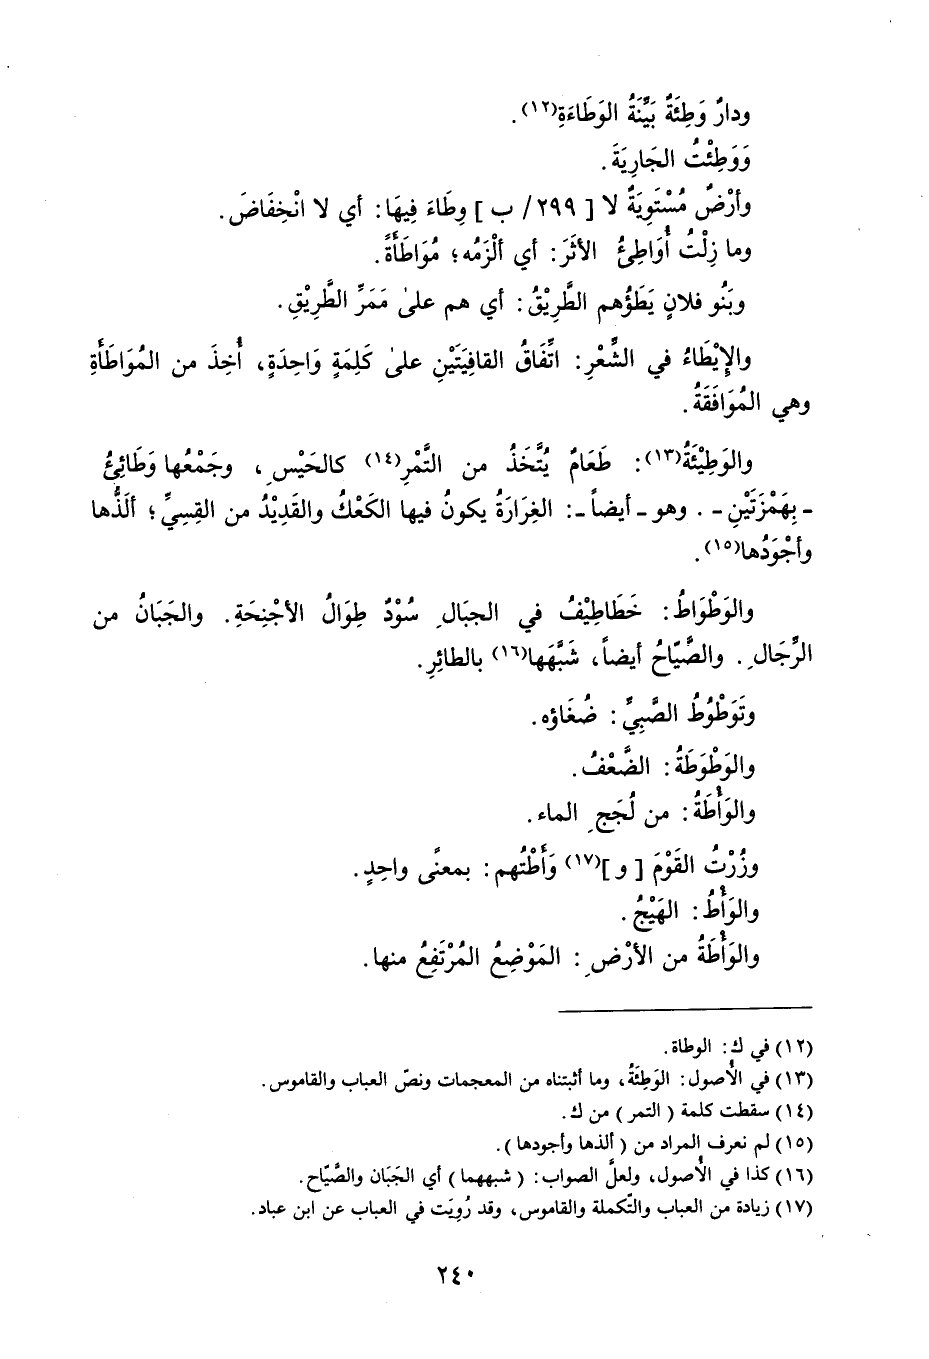 ودارٌ وَطِئَةٌ بَيِّنَةُ الوَطَاءَةِ(١٢).
وَوَطِئْتُ الجَارِيَةَ.
وأرْضٌ مُسْتَوِيَةٌ لا [ ٢٩٩/ ب ] وِطَاءَ فِيهَا: أي لا انْخِفَاضَ.
وما زِلْتُ أُوَاطِئُ الأثَرَ: أي ألْزَمُه؛ مُوَاطَأَةً.
وبَنُو فلانٍ يَطَؤُهم الطَّرِيْقُ: أي هم علىٰ مَمَرِّ الطَّرِيْقِ.
والإِيْطَاءُ في الشِّعْرِ: اتِّفَاقُ القافِيَتَيْنِ علىٰ كَلِمَةٍ وَاحِدَةٍ، أُخِذَ من المُوَاطَأَةِ
وهي المُوَافَقَةُ.
والوَطِيْئَةُ(١٣): طَعَامٌ يُتَّخَذُ من التَّمْرِ(١٤) كالحَيْسِ، وجَمْعُها وَطَائِئُ
ـ بِهَمْزَتَيْنِ ـ. وهو ـ أيضاً ـ: الغِرَارَةُ يكونُ فيها الكَعْكُ والقَدِيْدُ من القِسِيِّ؛ ألَذُّها
وأجْوَدُها(١٥).
والوَطْوَاطُ: خَطَاطِيْفُ في الجبَالِ سُوْدٌ طِوَالُ الأجْنِحَةِ. والجَبَانُ من
الرِّجَالِ. والصَّيّاحُ أيضاً، شَبَّهَها(١٦) بالطائِرِ.
وتَوَطْوُطُ الصَّبِيِّ: ضُغَاؤه.
والوَطْوَطَةُ: الضَّعْفُ.
والوَأْطَةُ: من لُجَجِ الماء.
وزُرْتُ القَوْمَ [ و ](١٧) وَأَطْتُهم: بمعنًى واحِدٍ.
والوَأْطُ: الهَيْجُ.
والوَأْطَةُ من الأرْضِ: المَوْضِعُ المُرْتَفِعُ منها.
(١٢) في ك: الوطاة.
(١٣) في الأُصول: الوَطِئَةُ، وما أثبتناه من المعجمات ونصّ العباب والقاموس.
(١٤) سقطت كلمة ( التمر ) من ك.
(١٥) لم نعرف المراد من ( ألذها وأجودها ).
(١٦) كذا في الأُصول، ولعلَّ الصواب: ( شبههما ) أي الجَبَان والصَّيّاح.
(١٧) زيادة من العباب والتّكملة والقاموس، وقد رُوِيَت في العباب عن ابن عباد.
٢٤٠